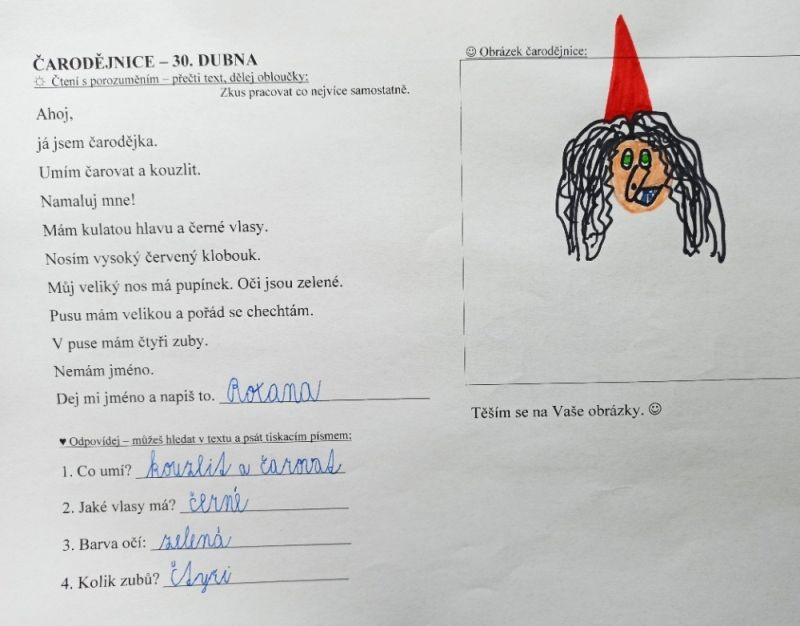 ČARODĚJNICE – 30. DUBNA
☼ Čtení s porozuměním – přečti text, dělej obloučky:
Zkus pracovat co nejvíce samostatně.
Ahoj,
já jsem čarodějka.
Umím čarovat a kouzlit.
Namaluj mne!
Mám kulatou hlavu a černé vlasy.
Nosím vysoký červený klobouk.
Můj veliký nos má pupínek. Oči jsou zelené.
Pusu mám velikou a pořád se chechtám.
V puse mám čtyři zuby.
Nemám jméno.
Dej mi jméno a napiš to. Roxana
♥ Odpovídej – můžeš hledat v textu a psát tiskacím písmem:
1. Co umí? kouzlit a čarovat
2. Jaké vlasy má? černé
3. Barva očí: zelená
4. Kolik zubů? čtyri
☺ Obrázek čarodějnice:
Těším se na Vaše obrázky. ☺